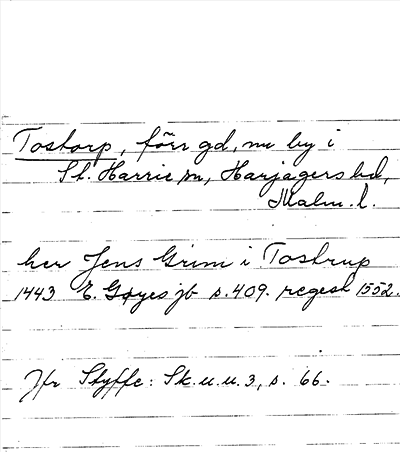 Tostorp, förr gd, nu by i
St. Harrie sn, Harjagers hd,
Malm. l.
her Jens Grim i Tostrup
1443 E. Gøyes jb s. 409. regest 1552.
Jfr Styffe: Sk. u. u. 3, s. 66.